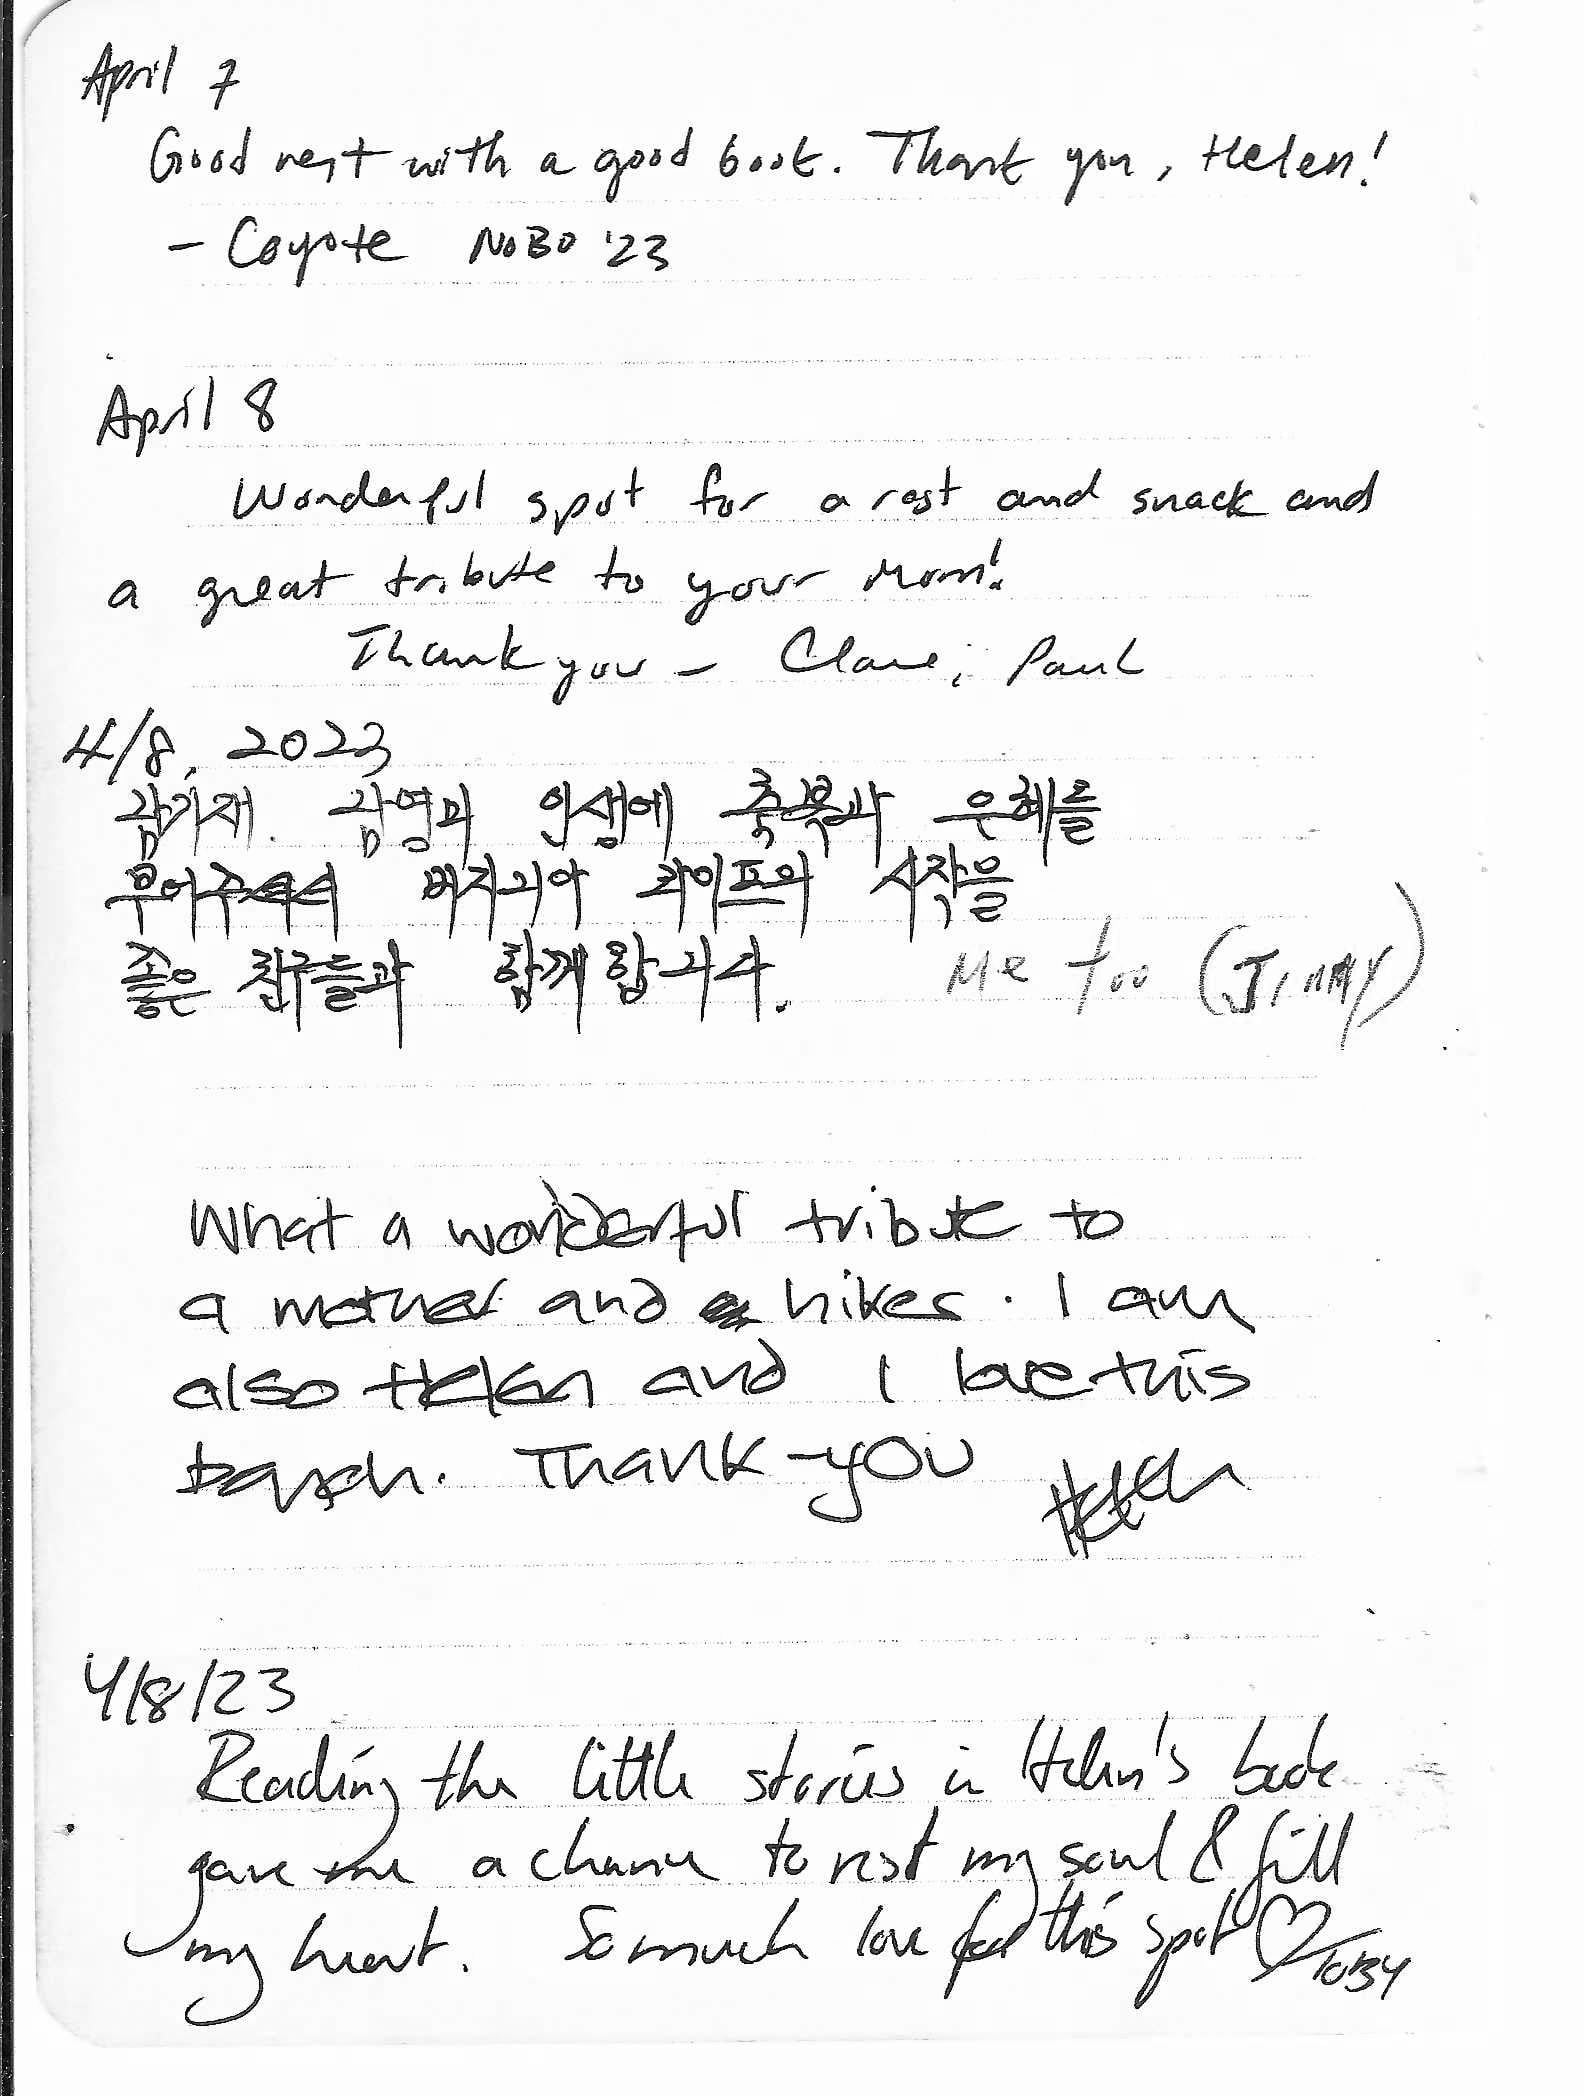 April 7
Good rest with a good book. Thank you, Helen!
- Coyote NOBO '23
April 8
Wonderful spot for a rest and snack and
a great tribute to your Mom!
Thank you - Paul
4/8, 2023
인생에 축복과 은혜를
부어주셔서 버지니아 라이프의 시작을
좋은 친구들과 함께 합니다.
Me too (JINNY)
What a wonderful tribute to
a mother and hiker. I am
also Helen and I love this
bench. Thank-you Helen
4/8/23
Reading the little stories in Helen's book
gave me a chance to rest my soul & fill
my heart. So much love for this spot ♡ TOBY